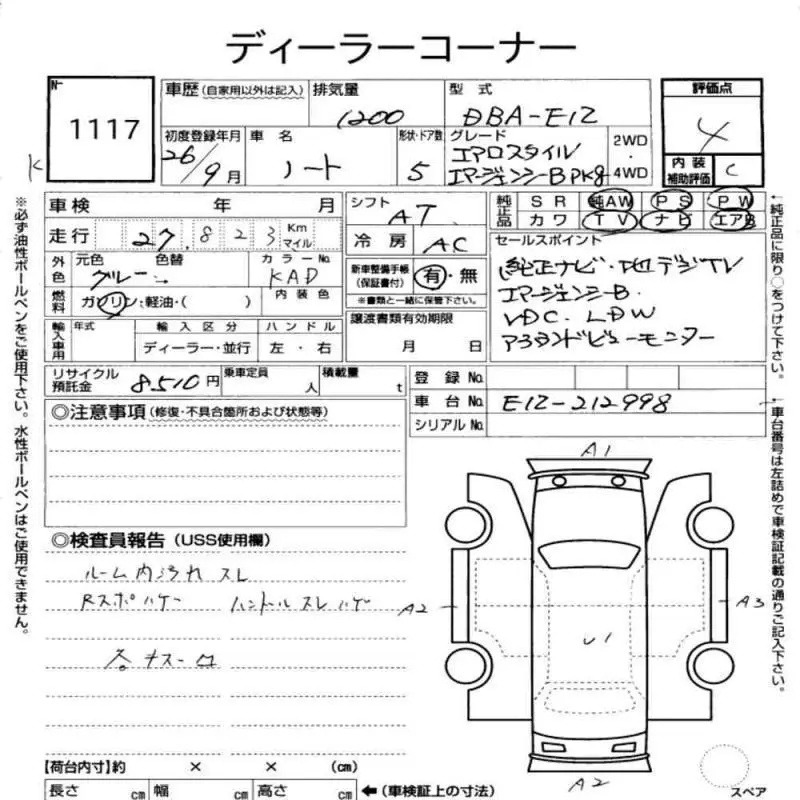 ディーラーコーナー
N-
1117
K
車歴 (自家用以外は記入)
排気量
1200
型式
DBA-E12
評価点
4
内装
補助評価
C
初度登録年月
26/9月
車名
ノート
形状・ドア数
5
グレード
エアロスタイル
エマージェンシーBPKg
2WD
・
4WD
車検 年 月
走行 27.823 Km マイル
外色
元色 色替
グレー
カラーNo.
KAD
燃料
ガソリン・軽油・( )
内装色
輸入車用
年式
輸入区分
ハンドル
ディーラー・並行
左・右
シフト
AT
冷房
AC
新車整備手帳
(保証書付)
有・無
※書類と一緒に保管下さい。
譲渡書類有効期限
月 日
純正品
SR 純AW PS PW
カワ TV ナビ エアB
セールスポイント
純正ナビ・地デジTV
エマージェンシーB.
VDC. LDW
アラウンドビューモニター
リサイクル預託金 8510円
乗車定員 人
積載量 t
登録No.
車台No. E12-212998
シリアルNo.
◎注意事項 (修復・不具合箇所および状態等)
◎検査員報告 (USS使用欄)
ルーム内汚れ スレ
Rスポハゲー ハンドルスレハゲ
各キズー
A1
A2
A3
U1
A2
スペア
【荷台内寸】約 × × (cm)
長さ cm 幅 cm 高さ cm ←(車検証上の寸法)
※必ず油性ボールペンをご使用下さい。水性ボールペンはご使用できません。
←純正品に限り○をつけて下さい。
←車台番号は左詰めで車検証記載の通りご記入下さい。